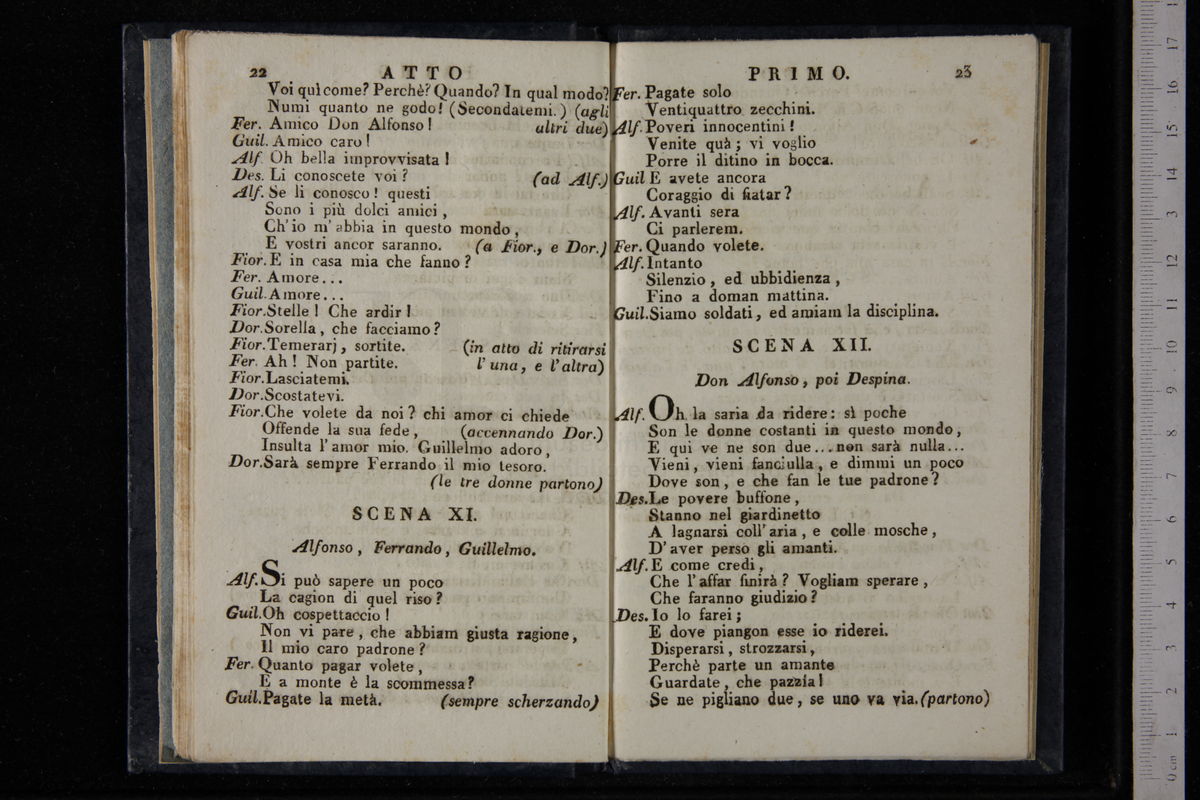 22
ATTO
Voi quì come? Perchè? Quando? In qual modo?
Numi quanto ne godo! (Secondatemi.) (agli
Fer. Amico Don Alfonso! altri due)
Guil. Amico caro!
Alf. Oh bella improvvisata!
Des. Li conoscete voi? (ad Alf.)
Alf. Se li conosco! questi
Sono i più dolci amici,
Ch'io m'abbia in questo mondo,
E vostri ancor saranno. (a Fior., e Dor.)
Fior. E in casa mia che fanno?
Fer. Amore...
Guil. Amore...
Fior. Stelle! Che ardir!
Dor. Sorella, che facciamo?
Fior. Temerarj, sortite. (in atto di ritirarsi
Fer. Ah! Non partite. l'una, e l'altra)
Fior. Lasciatemi.
Dor. Scostatevi.
Fior. Che volete da noi? chi amor ci chiede
Offende la sua fede, (accennando Dor.)
Insulta l'amor mio. Guillelmo adoro,
Dor. Sarà sempre Ferrando il mio tesoro.
(le tre donne partono)
SCENA XI.
Alfonso, Ferrando, Guillelmo.
Alf. Si può sapere un poco
La cagion di quel riso?
Guil. Oh cospettaccio!
Non vi pare, che abbiam giusta ragione,
Il mio caro padrone?
Fer. Quanto pagar volete,
E a monte è la scommessa?
Guil. Pagate la metà. (sempre scherzando)
PRIMO.
23
Fer. Pagate solo
Ventiquattro zecchini.
Alf. Poveri innocentini!
Venite quà; vi voglio
Porre il ditino in bocca.
Guil E avete ancora
Coraggio di fiatar?
Alf. Avanti sera
Ci parlerem.
Fer. Quando volete.
Alf. Intanto
Silenzio, ed ubbidienza,
Fino a doman mattina.
Guil. Siamo soldati, ed amiam la disciplina.
SCENA XII.
Don Alfonso, poi Despina.
Alf. Oh la saria da ridere: sì poche
Son le donne costanti in questo mondo,
E qui ve ne son due... non sarà nulla...
Vieni, vieni fanciulla, e dimmi un poco
Dove son, e che fan le tue padrone?
Des. Le povere buffone,
Stanno nel giardinetto
A lagnarsi coll'aria, e colle mosche,
D'aver perso gli amanti.
Alf. E come credi,
Che l'affar finirà? Vogliam sperare,
Che faranno giudizio?
Des. Io lo farei;
E dove piangon esse io riderei.
Disperarsi, strozzarsi,
Perchè parte un amante
Guardate, che pazzia!
Se ne pigliano due, se uno va via. (partono)
0 cm 1 2 3 4 5 6 7 8 9 10 11 12 13 14 15 16 17